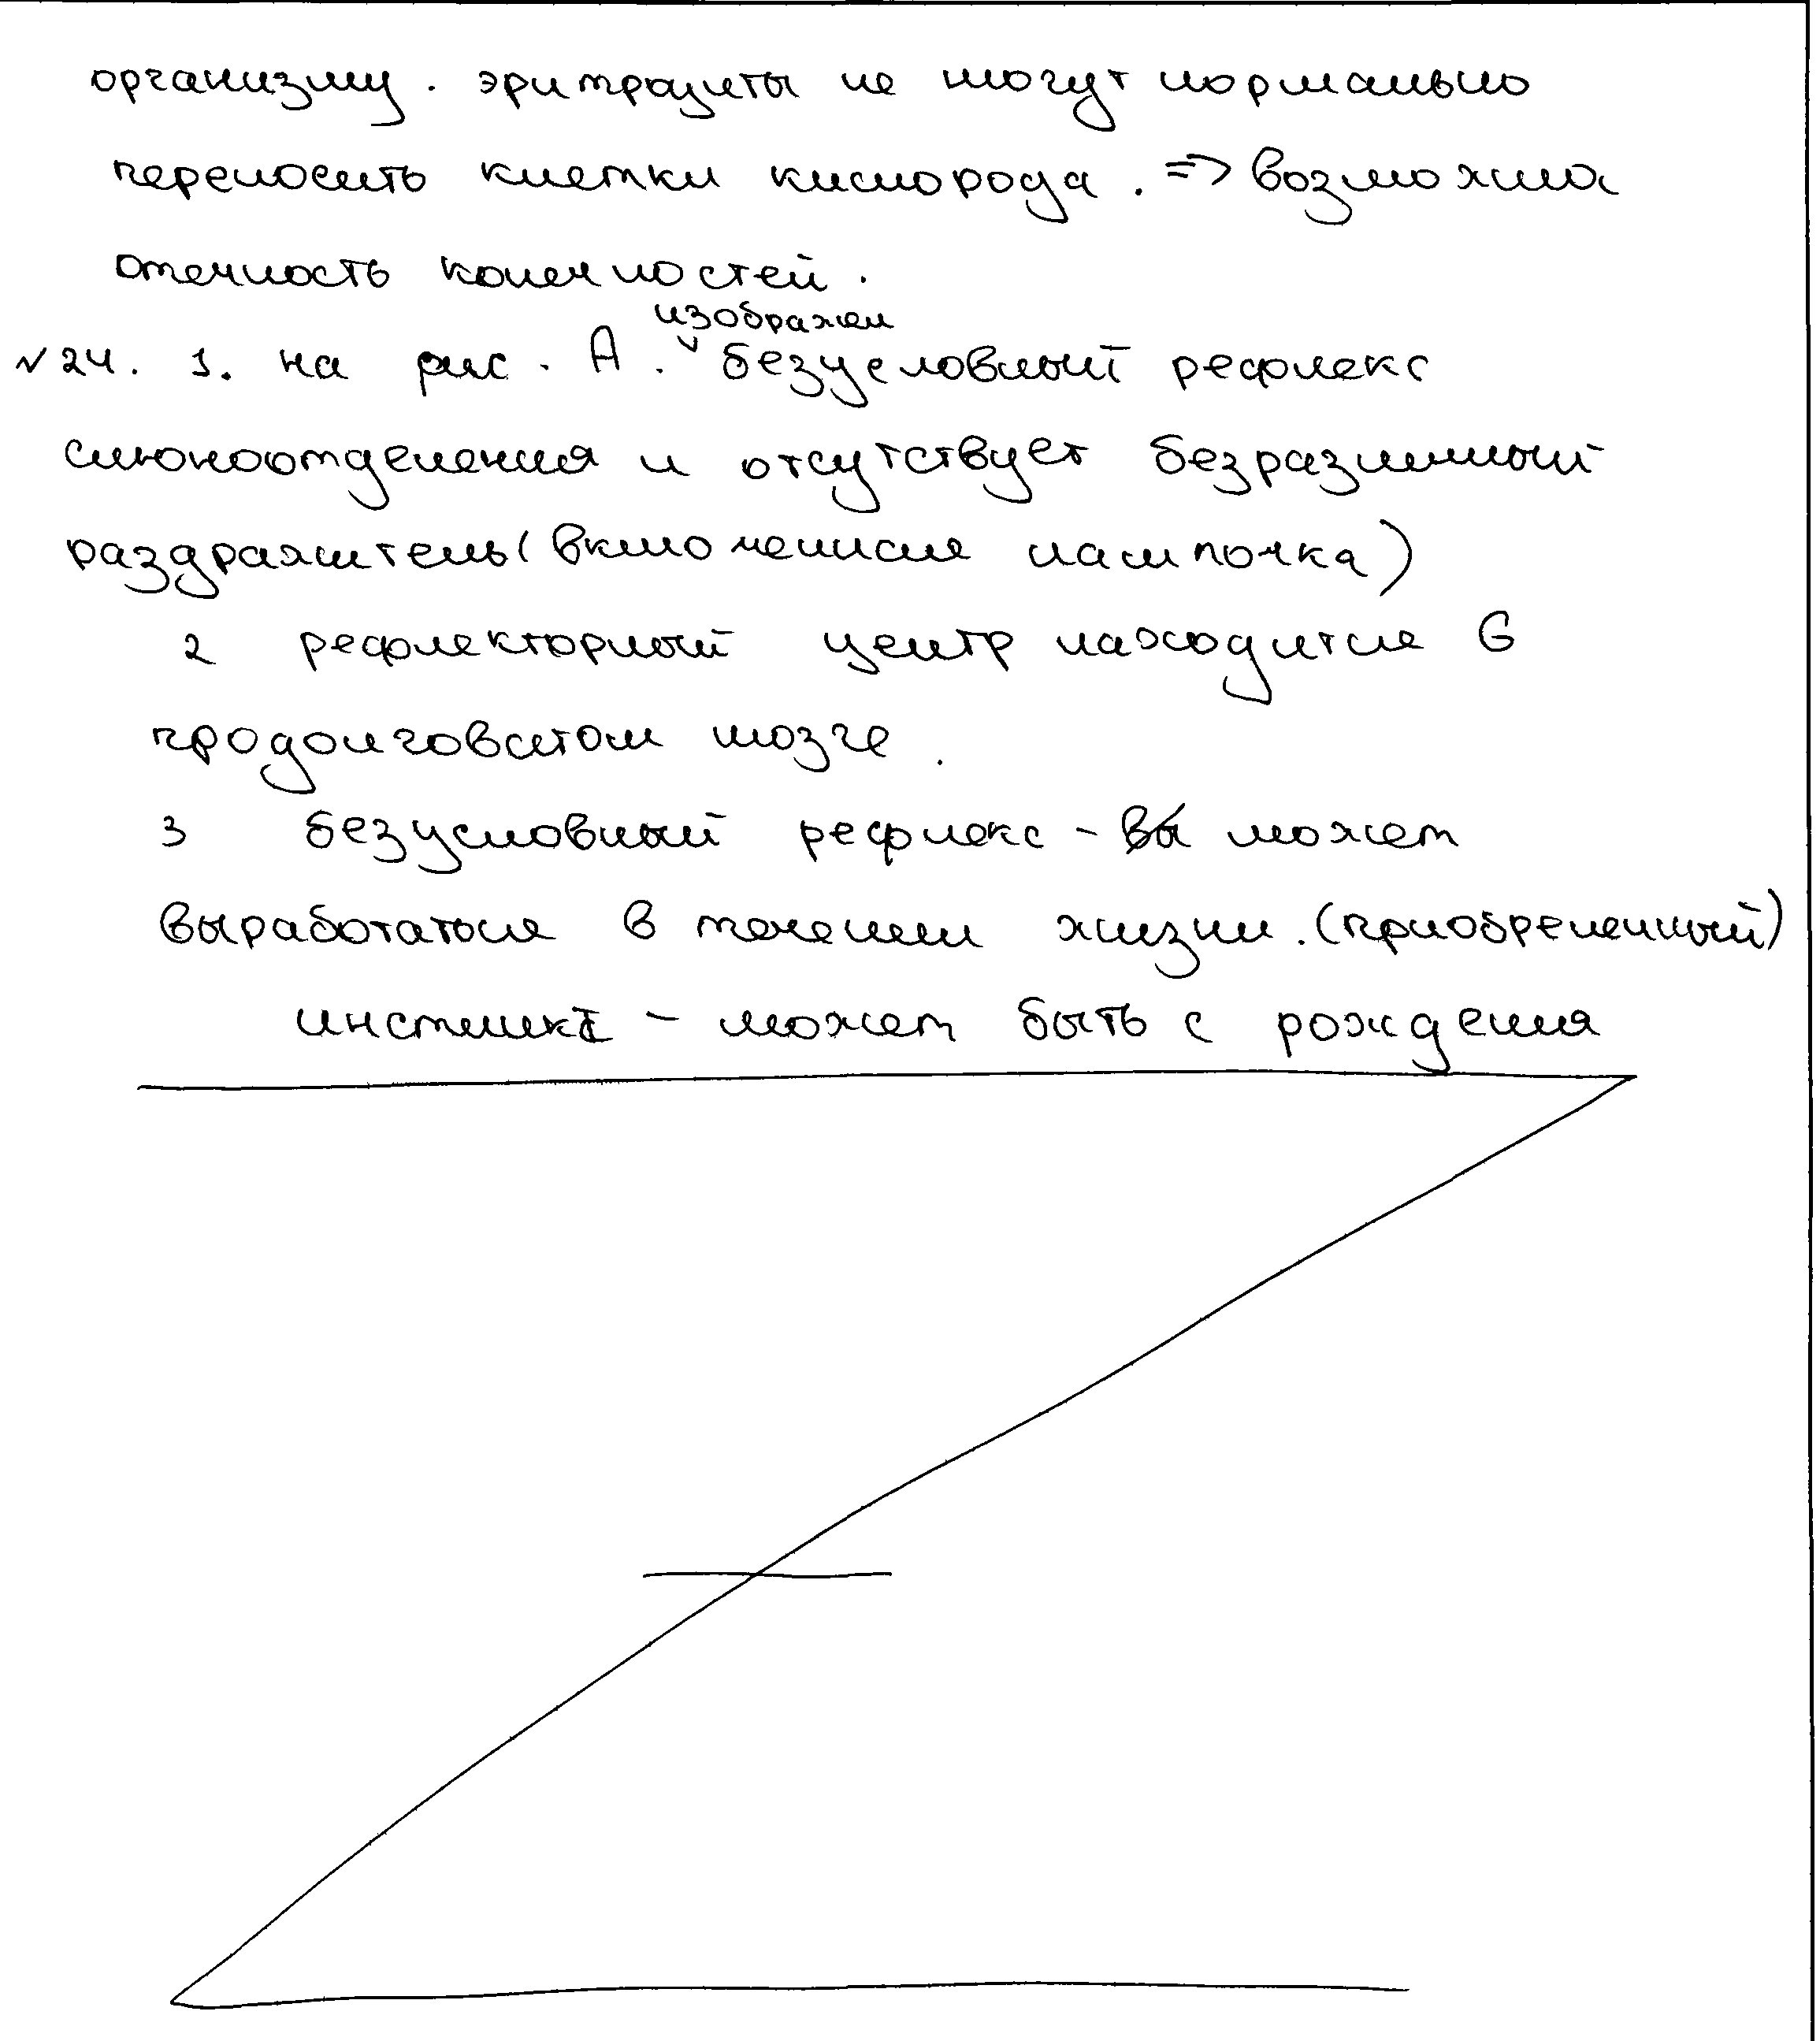 организму. эритроциты не могут нормально
переносить клетки кислорода. => возможна
отечность конечностей.
изображен
№24. 1. на рис. А. ᵛ безусловный рефлекс
слюноотделения и отсутствует безразличный
раздражитель (включенная лампочка)
2 рефлекторный центр находится в
продолговатом мозге.
3 безусловный рефлекс - может
выработаться в течении жизни. (приобретенный)
инстинкт - может быть с рождения